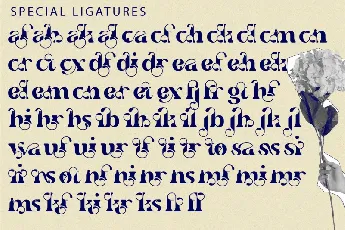 SPECIAL LIGATURES
af ah ak al ca cf ch ck cl cm cn
cr ct cx df di dr ea ef eh ek
el em cn er et ex fj fr gt hf
hi hr hs ib ih ik il jb jh jk jl
ya uf ui ur tf ti tr to sa ss si
ir rs ot nf ni nr ns mf mi mr
ms kf ki kr ks